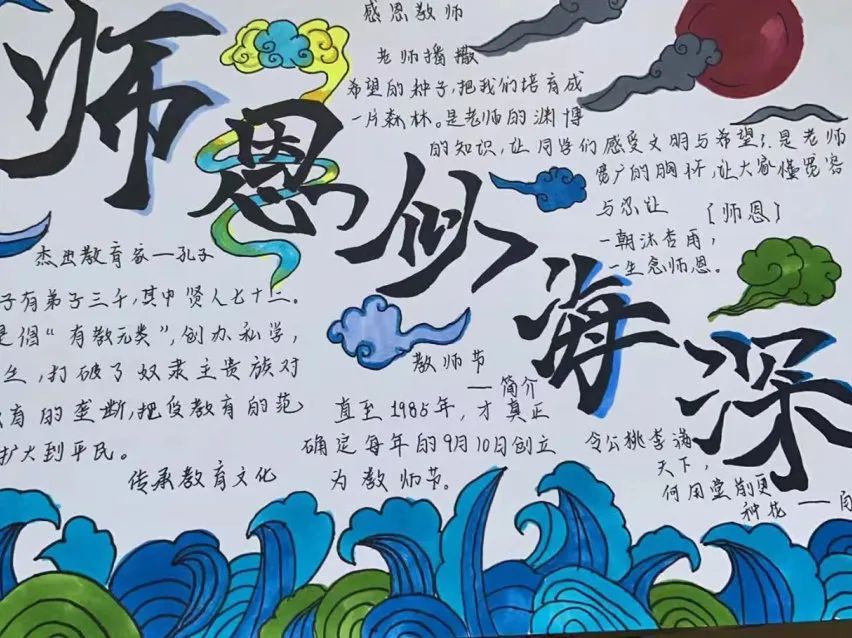 师恩似海深
感恩教师
老师播撒
希望的种子,把我们培育成
一片森林。是老师的渊博
的知识,让同学们感受文明与希望;是老师
宽广的胸怀,让大家懂宽容
与忍让
〔师恩〕
一朝沐杏雨,
一生念师恩。
杰出教育家—孔子
子有弟子三千,其中贤人七十二。
是倡“有教无类”,创办私学,
生,打破了奴隶主贵族对
教育的垄断,把受教育的范
扩大到平民。
传承教育文化
教师节
—简介
直至1985年,才真正
确定每年的9月10日创立
为教师节。
令公桃李满
天下,
何用堂前更
种花——